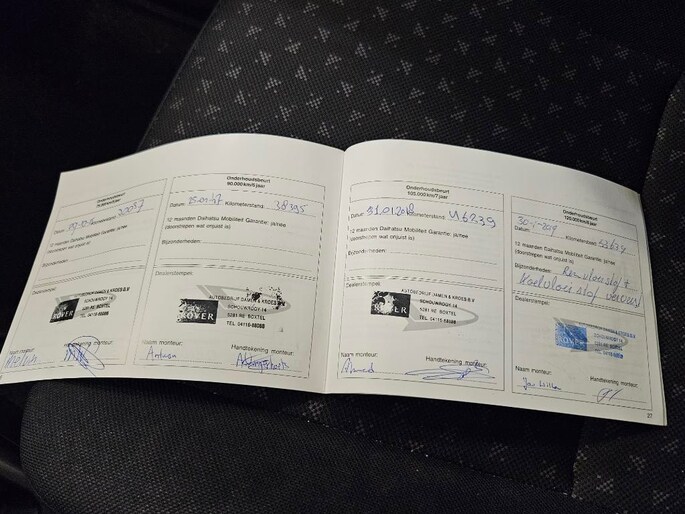 Onderhoudsbeurt
75.000 km/5 jaar
Datum: Kilometerstand:
12 maanden Daihatsu Mobiliteit Garantie: ja/nee
(doorstrepen wat onjuist is)
Bijzonderheden:
Dealerstempel:
ROVER
SCHOUWROOT 14
5281 RE BOXTEL
TEL. 04116-88088
Naam monteur: Handtekening monteur:
Onderhoudsbeurt
90.000 km/6 jaar
Datum: Kilometerstand: 38395
12 maanden Daihatsu Mobiliteit Garantie: ja/nee
(doorstrepen wat onjuist is)
Bijzonderheden:
Dealerstempel:
AUTOBEDRIJF DAMEN & KROES B.V
ROVER
SCHOUWROOT 14
5281 RE BOXTEL
TEL. 04116-88088
Naam monteur: Handtekening monteur:
Onderhoudsbeurt
105.000 km/7 jaar
Datum: 31.01.2018 Kilometerstand: 46239
12 maanden Daihatsu Mobiliteit Garantie: ja/nee
(doorstrepen wat onjuist is)
Bijzonderheden:
Dealerstempel:
AUTOBEDRIJF DAMEN & KROES B.V
ROVER
SCHOUWROOT 14
5281 RE BOXTEL
TEL. 04116-88088
Naam monteur: Handtekening monteur:
Ahmed
Onderhoudsbeurt
120.000 km/8 jaar
Datum: Kilometerstand: 53634
12 maanden Daihatsu Mobiliteit Garantie: ja/nee
(doorstrepen wat onjuist is)
Bijzonderheden: Remvloeistof +
Koelvloeistof ververst
Dealerstempel:
ROVER
Naam monteur: Handtekening monteur:
Jan Willem
27